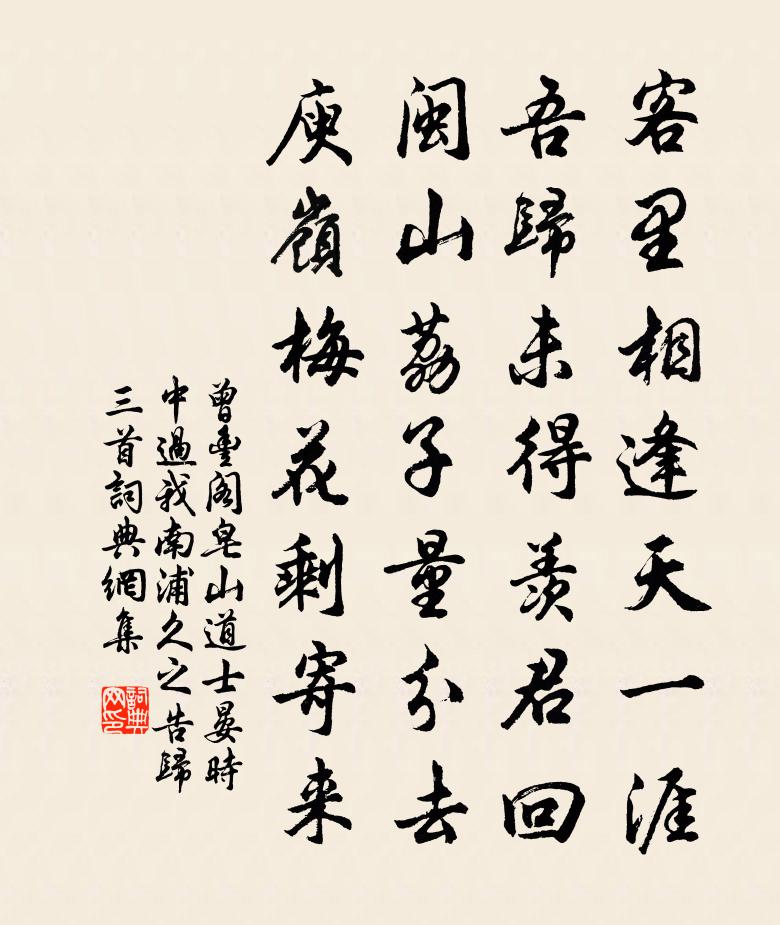 客里相逢天一涯
吾歸未得羨君回
閩山荔子量分去
庾嶺梅花剩寄来
曾豐閣皂山道士晏時
中過我南浦久之告歸
三首詞典網集
詞典网印